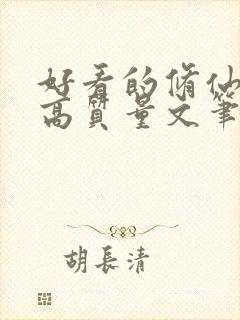 好看的脩仙
高質量文筆
胡長清